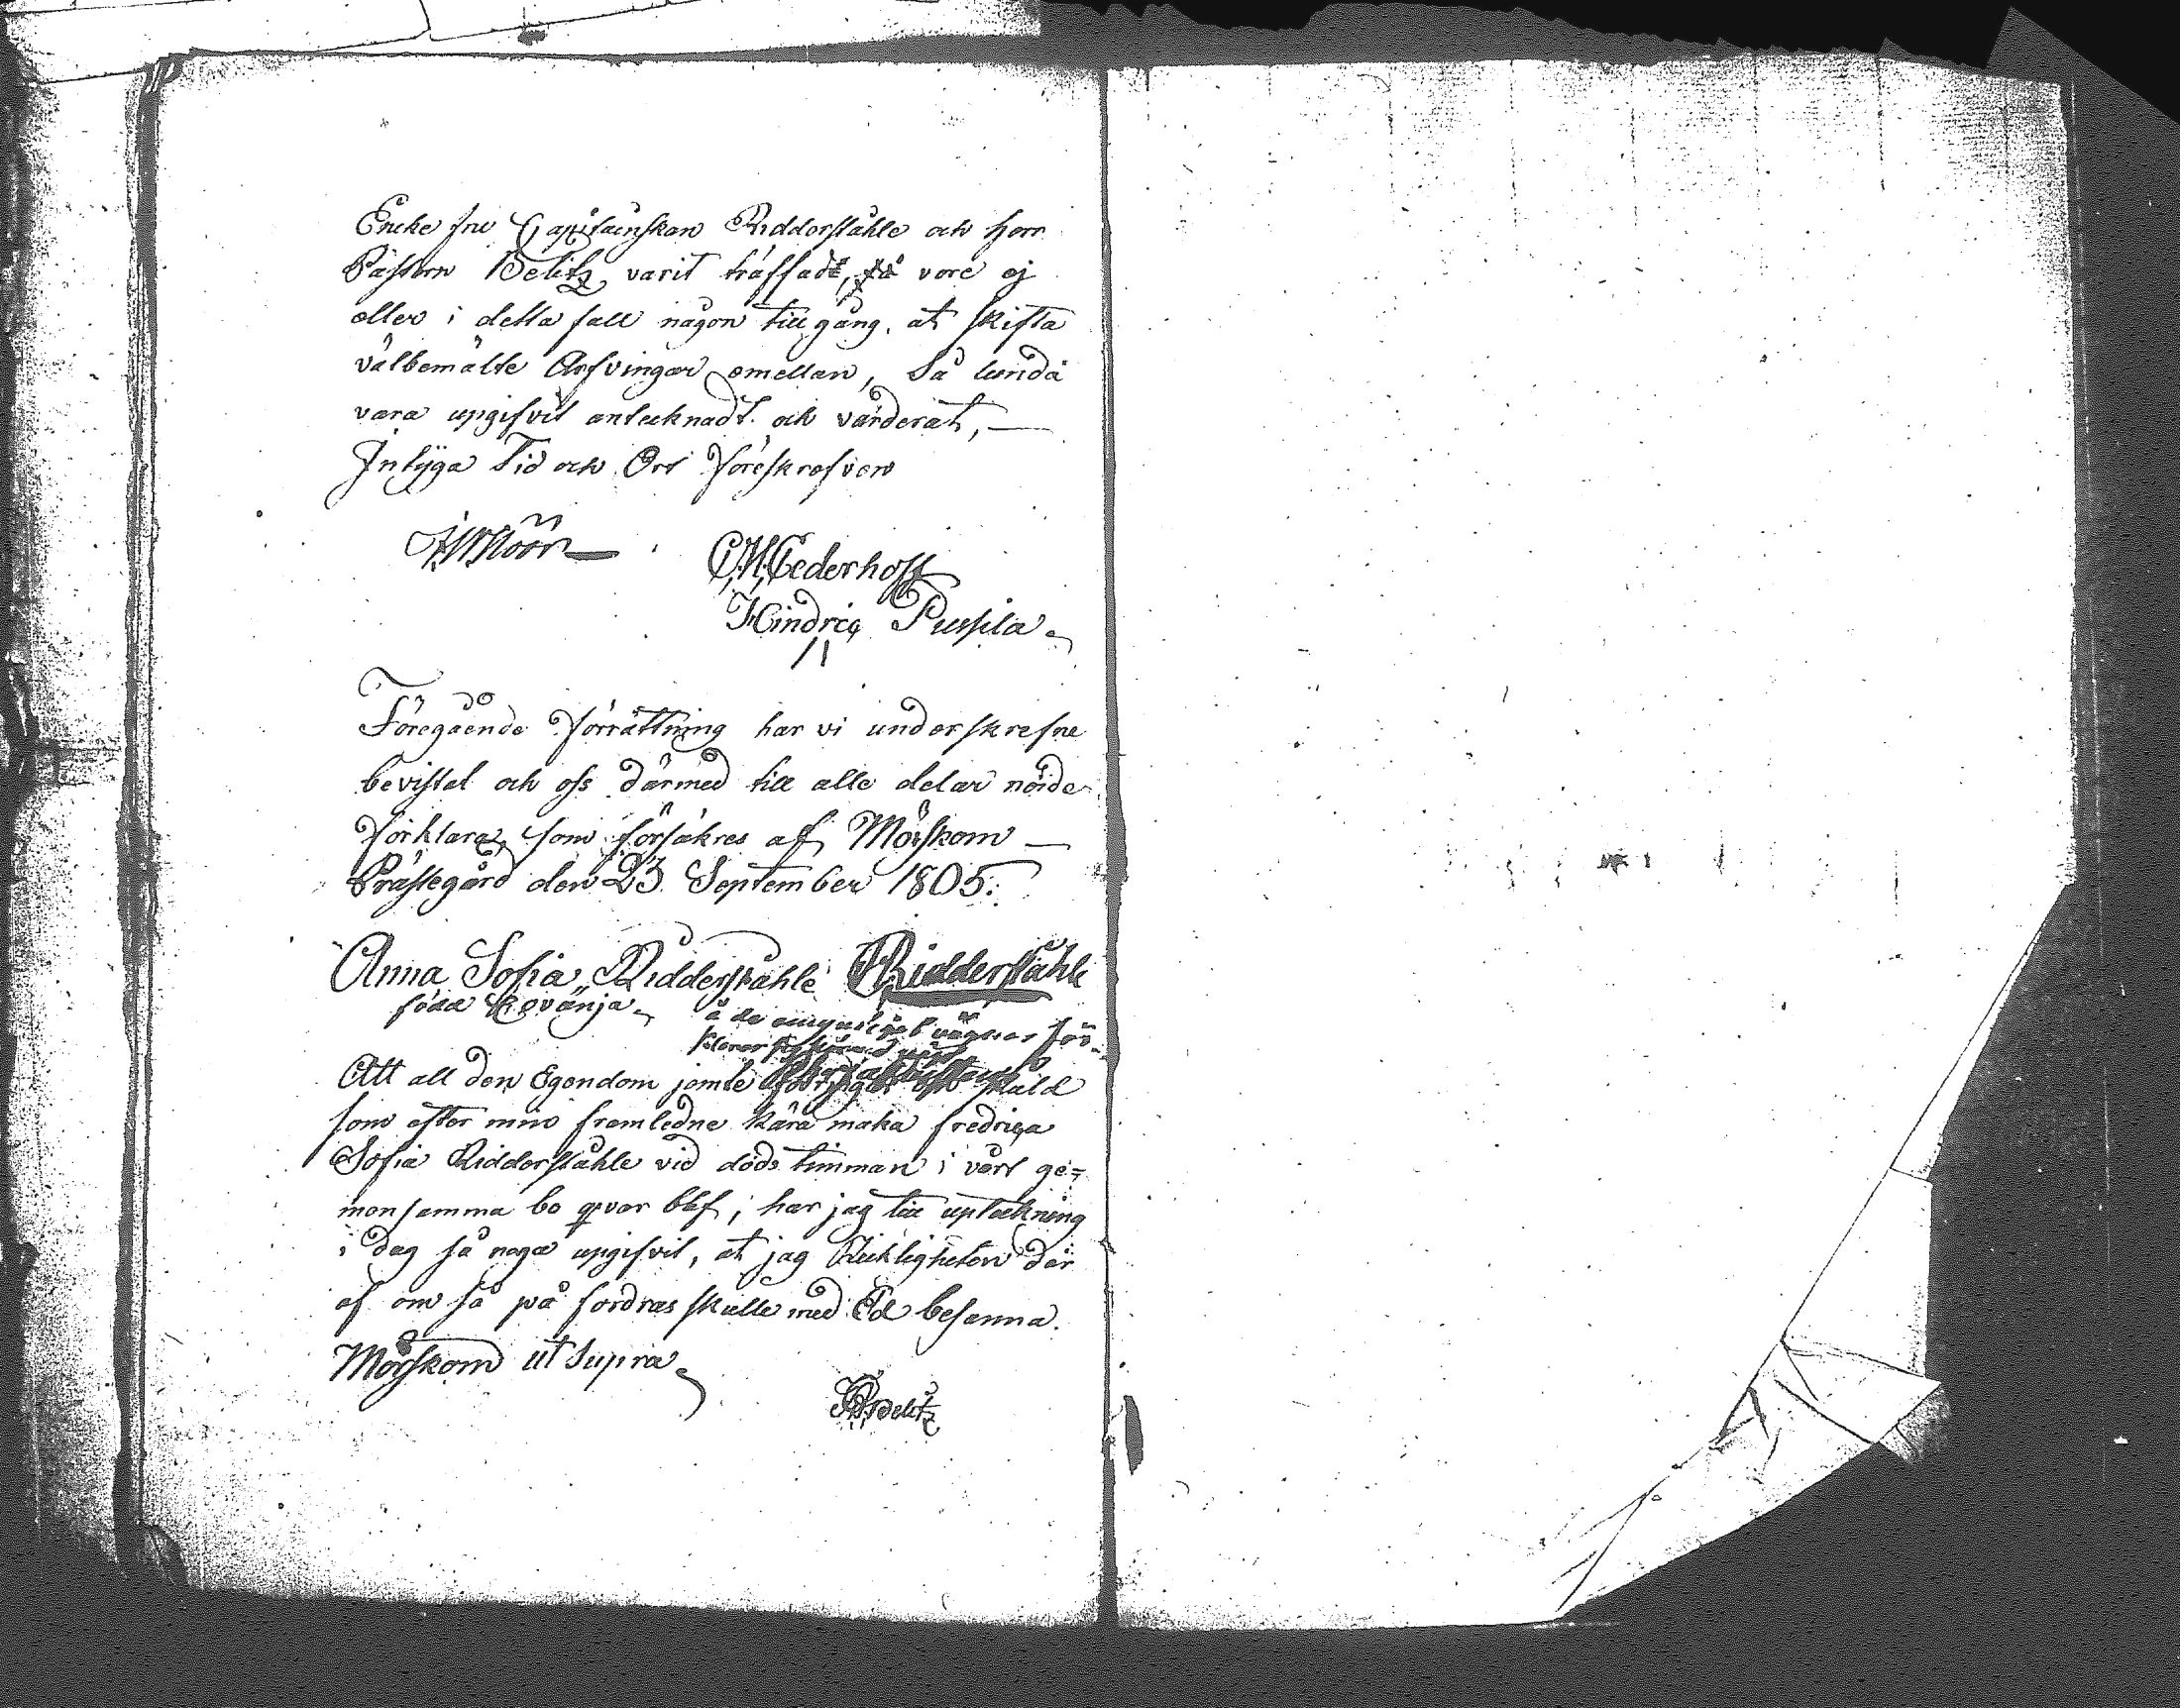 Encke fru Capitainskan Ridderstähle och herr
Pastorn Belitz varit träffadt, så vore ej
eller i detta fall någon tillgång at skifta
välbemälte Arfvingar emellan, Så lunda
vara upgifvit antecknadt och värderat, —
Intyga Tid och Ort föreskrefven
C. M. Cederhoff
Hindric Puspila
Föregående förrättning har vi underskrefne
bevistat och oss därmed till alla delar nöide
förklara, som försäkres af Mörskom —
Prästegård den 23 September 1805.
Anna Sofia Ridderstähle Ridderståhle
född Rovänja
å de vägnar för
Att all den Egendom jemte skuld
som efter min framledne kära maka fredrica
Sofia Ridderståhle vid döds timman i vårt ge=
mensamma bo qvar blef, har jag till upteckning
i dag så noga upgifvit, at jag Ricktigheten där
af om så på fordras skulle med Ed besanna.
Mörskom ut supra
Belitz